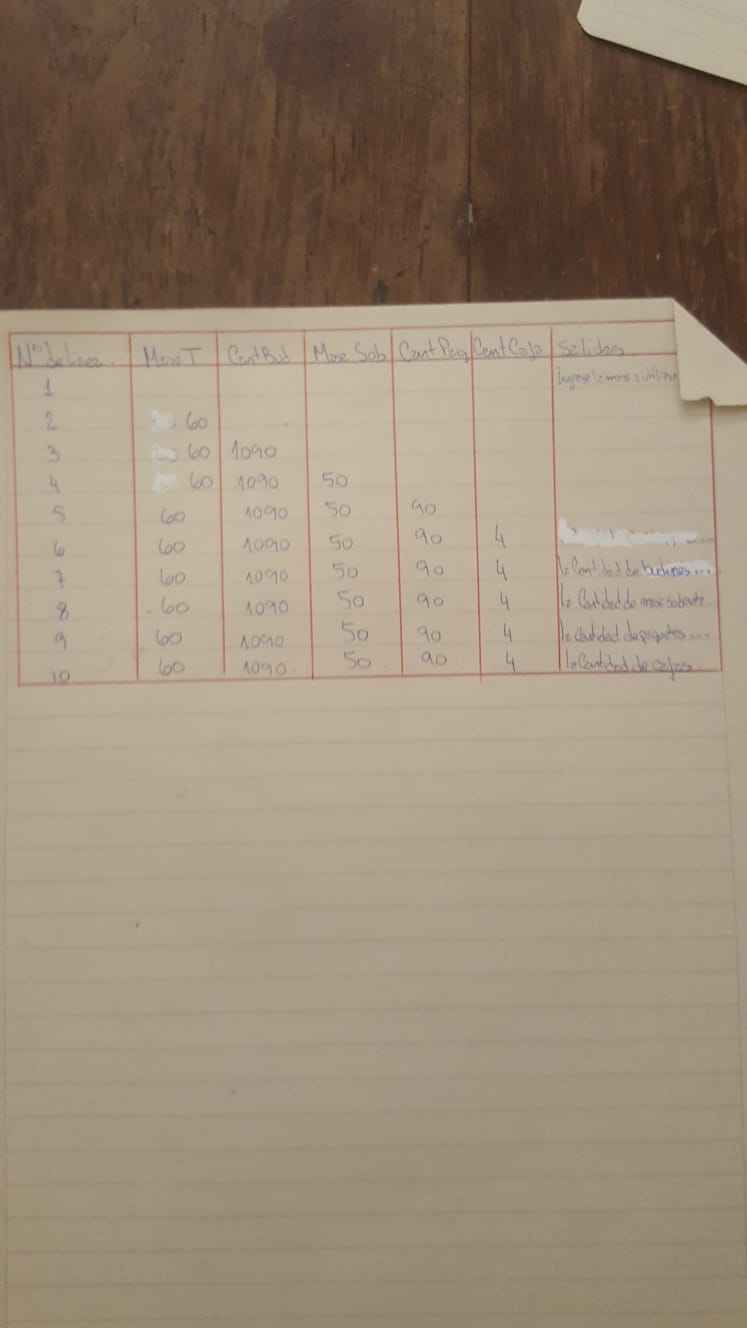 N° de linea Masa T Cant Bud Masa Sob Cant Paq Cant Caja Salidas
1 Ingrese la masa a utilizar
2 60
3 60 1090
4 60 1090 50
5 60 1090 50 90
6 60 1090 50 90 4
7 60 1090 50 90 4 la Cantidad de budines...
8 60 1090 50 90 4 la Cantidad de masa sobrante
9 60 1090 50 90 4 la Cantidad de paquetes...
10 60 1090 50 90 4 la Cantidad de cajas